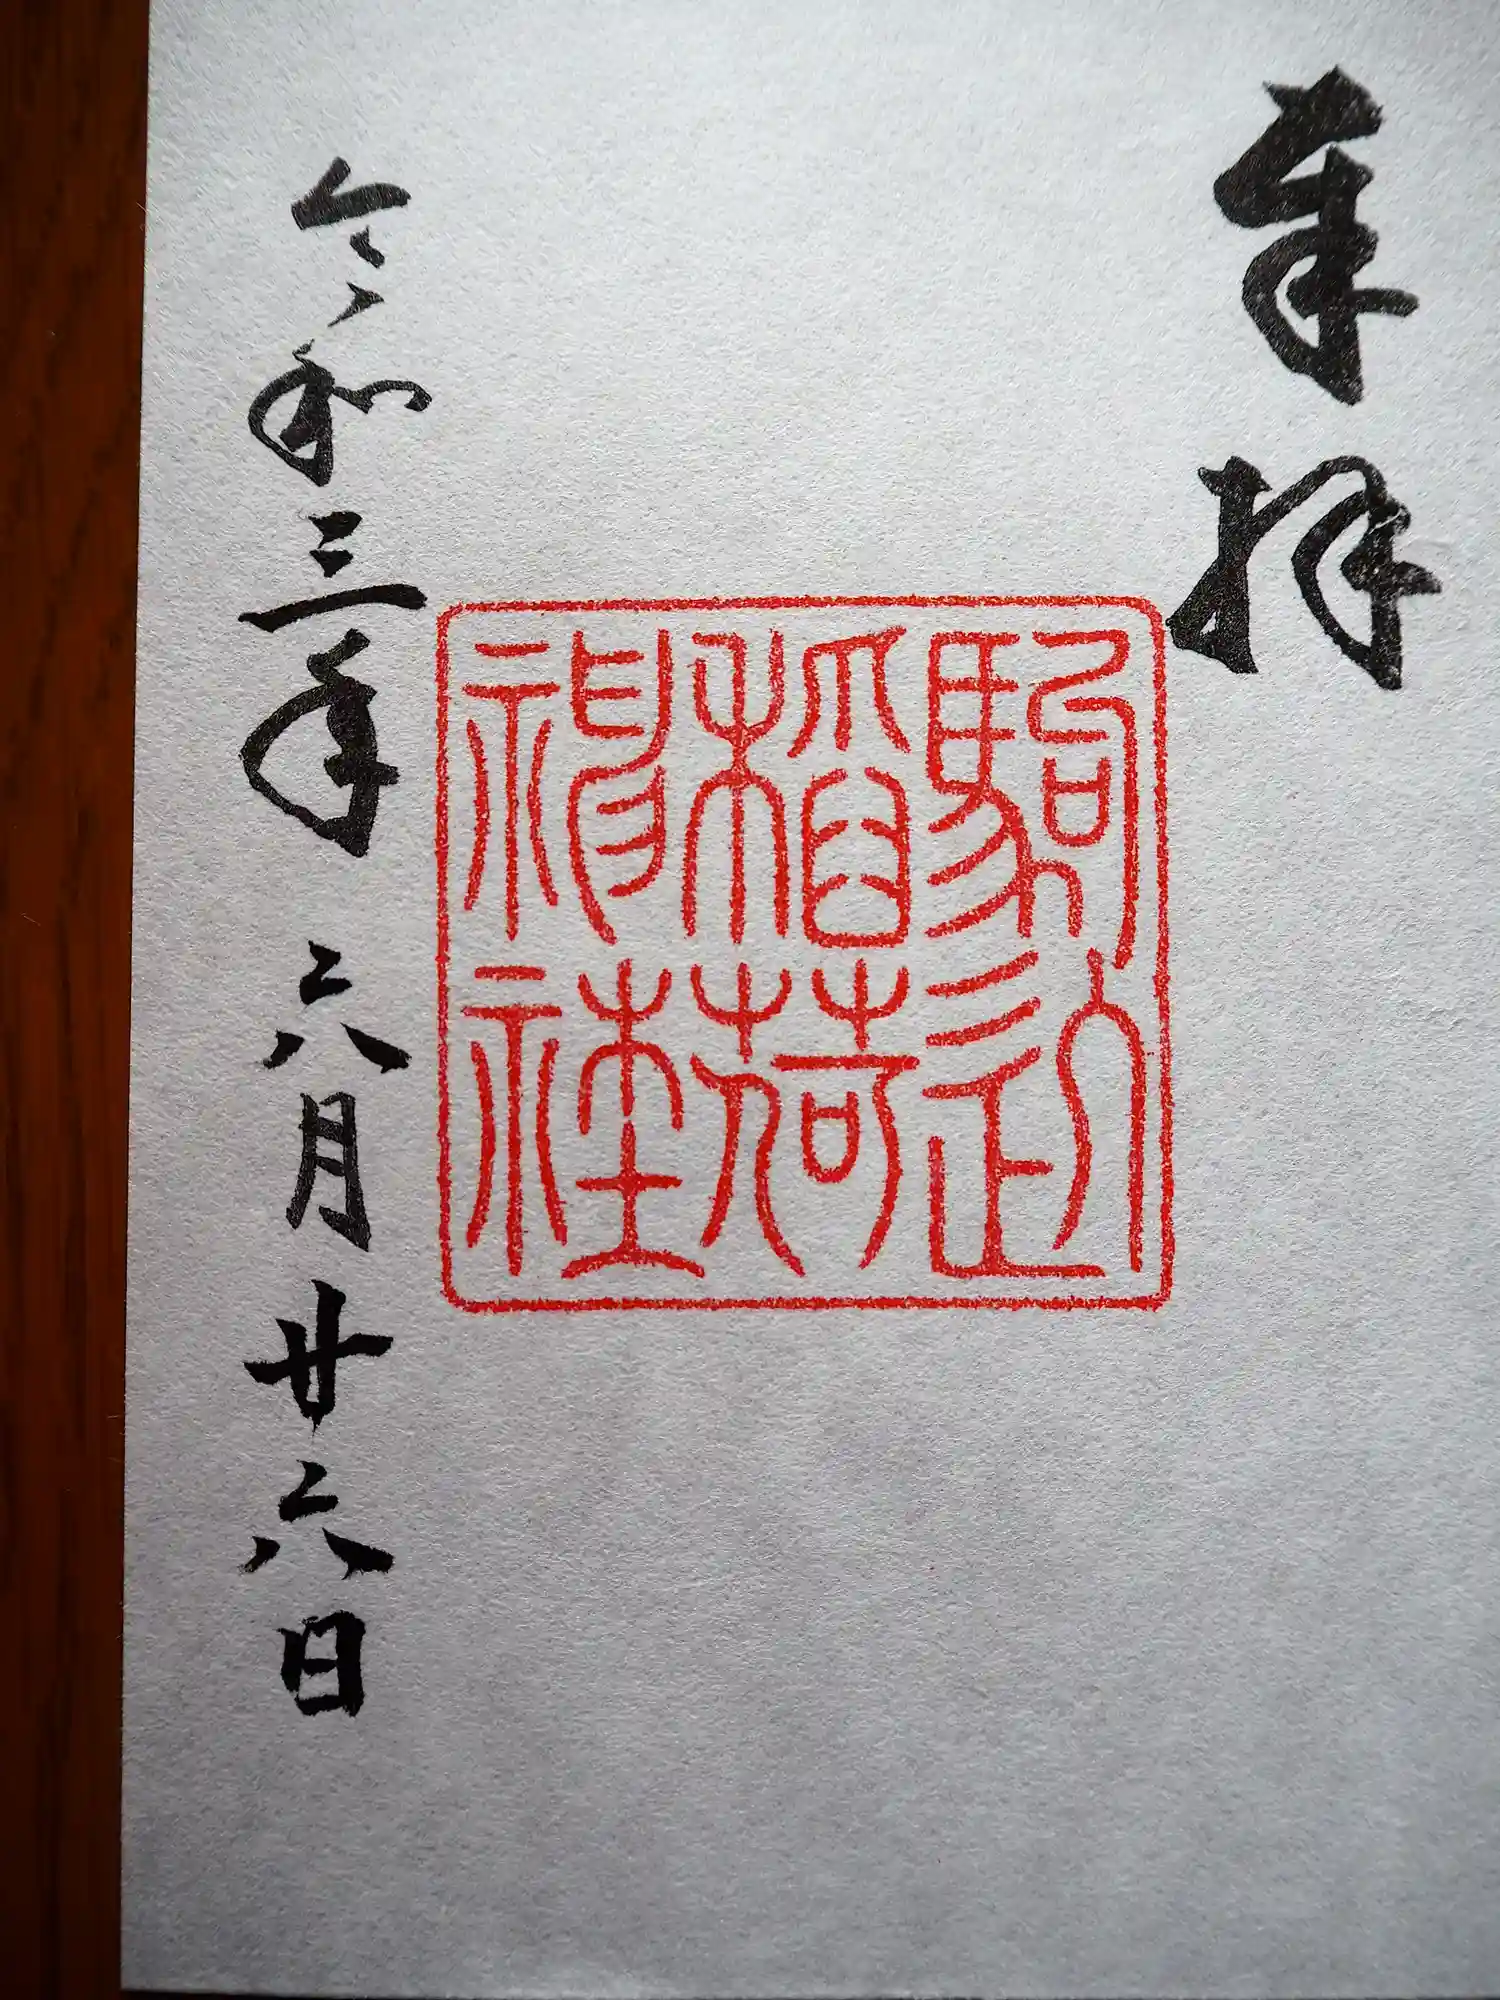 奉拝
駒込
稻荷
神社
令和三年六月廿六日